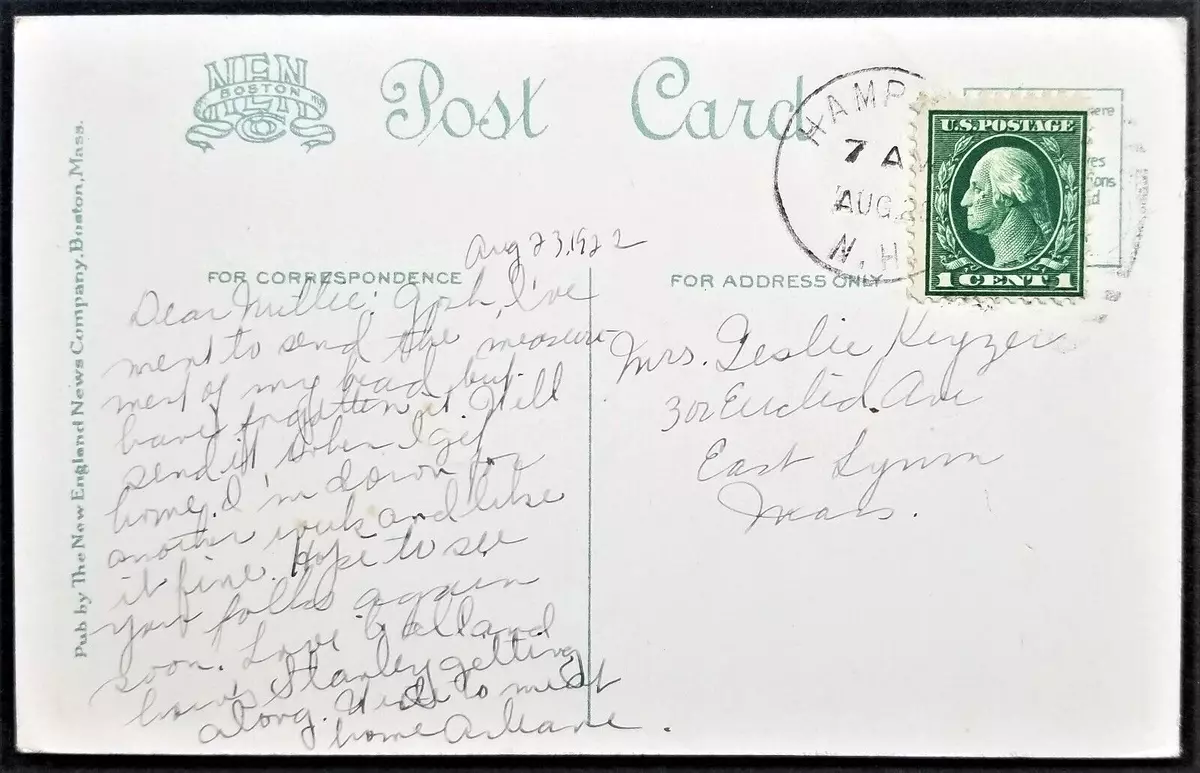 NEN
BOSTON
Post Card
HAMP
7 A
AUG 2
N.H
U.S. POSTAGE
1 CENT 1
ere
es
ons
d
Pub by The New England News Company, Boston, Mass.
Aug 23, 1922
FOR CORRESPONDENCE
FOR ADDRESS ONLY
Dear Millie: Gosh, I've
ment to send the measure-
ment of my head but
have forgotten it. Will
send it when I get
home. I'm down for
another week and like
it fine. Hope to see
you folks again
soon. Love to all and
how's Stanley getting
along. Write to me at
home Arleane.
Mrs. Leslie Keyzer
302 Euclid Ave
East Lynn
Mass.